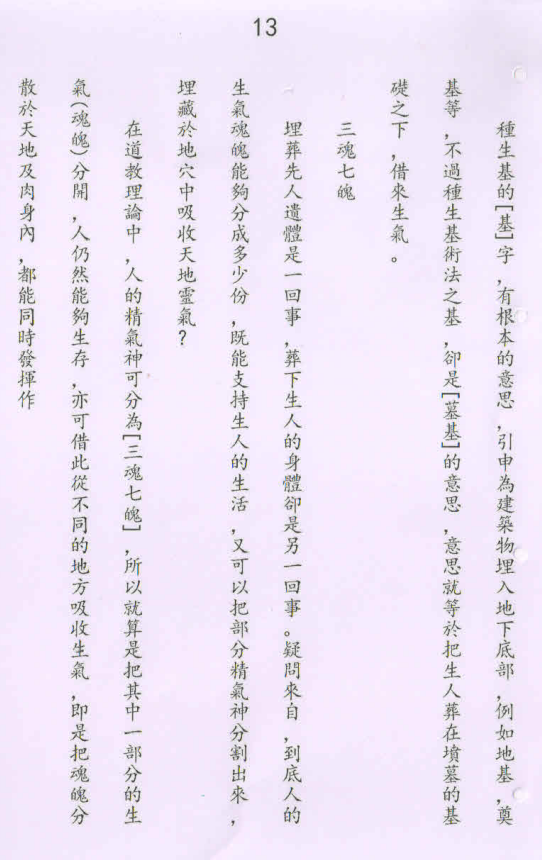 13
種生基的[基]字，有根本的意思，引申為建築物埋入地下底部，例如地基，奠
基等，不過種生基術法之基，卻是[墓基]的意思，意思就等於把生人葬在墳墓的基
礎之下，借來生氣。
三魂七魄
埋葬先人遺體是一回事，葬下生人的身體卻是另一回事。疑問來自，到底人的
生氣魂魄能夠分成多少份，既能支持生人的生活，又可以把部分精氣神分割出來，
埋藏於地穴中吸收天地靈氣？
在道教理論中，人的精氣神可分為[三魂七魄]，所以就算是把其中一部分的生
氣(魂魄)分開，人仍然能夠生存，亦可借此從不同的地方吸收生氣，即是把魂魄分
散於天地及肉身內，都能同時發揮作